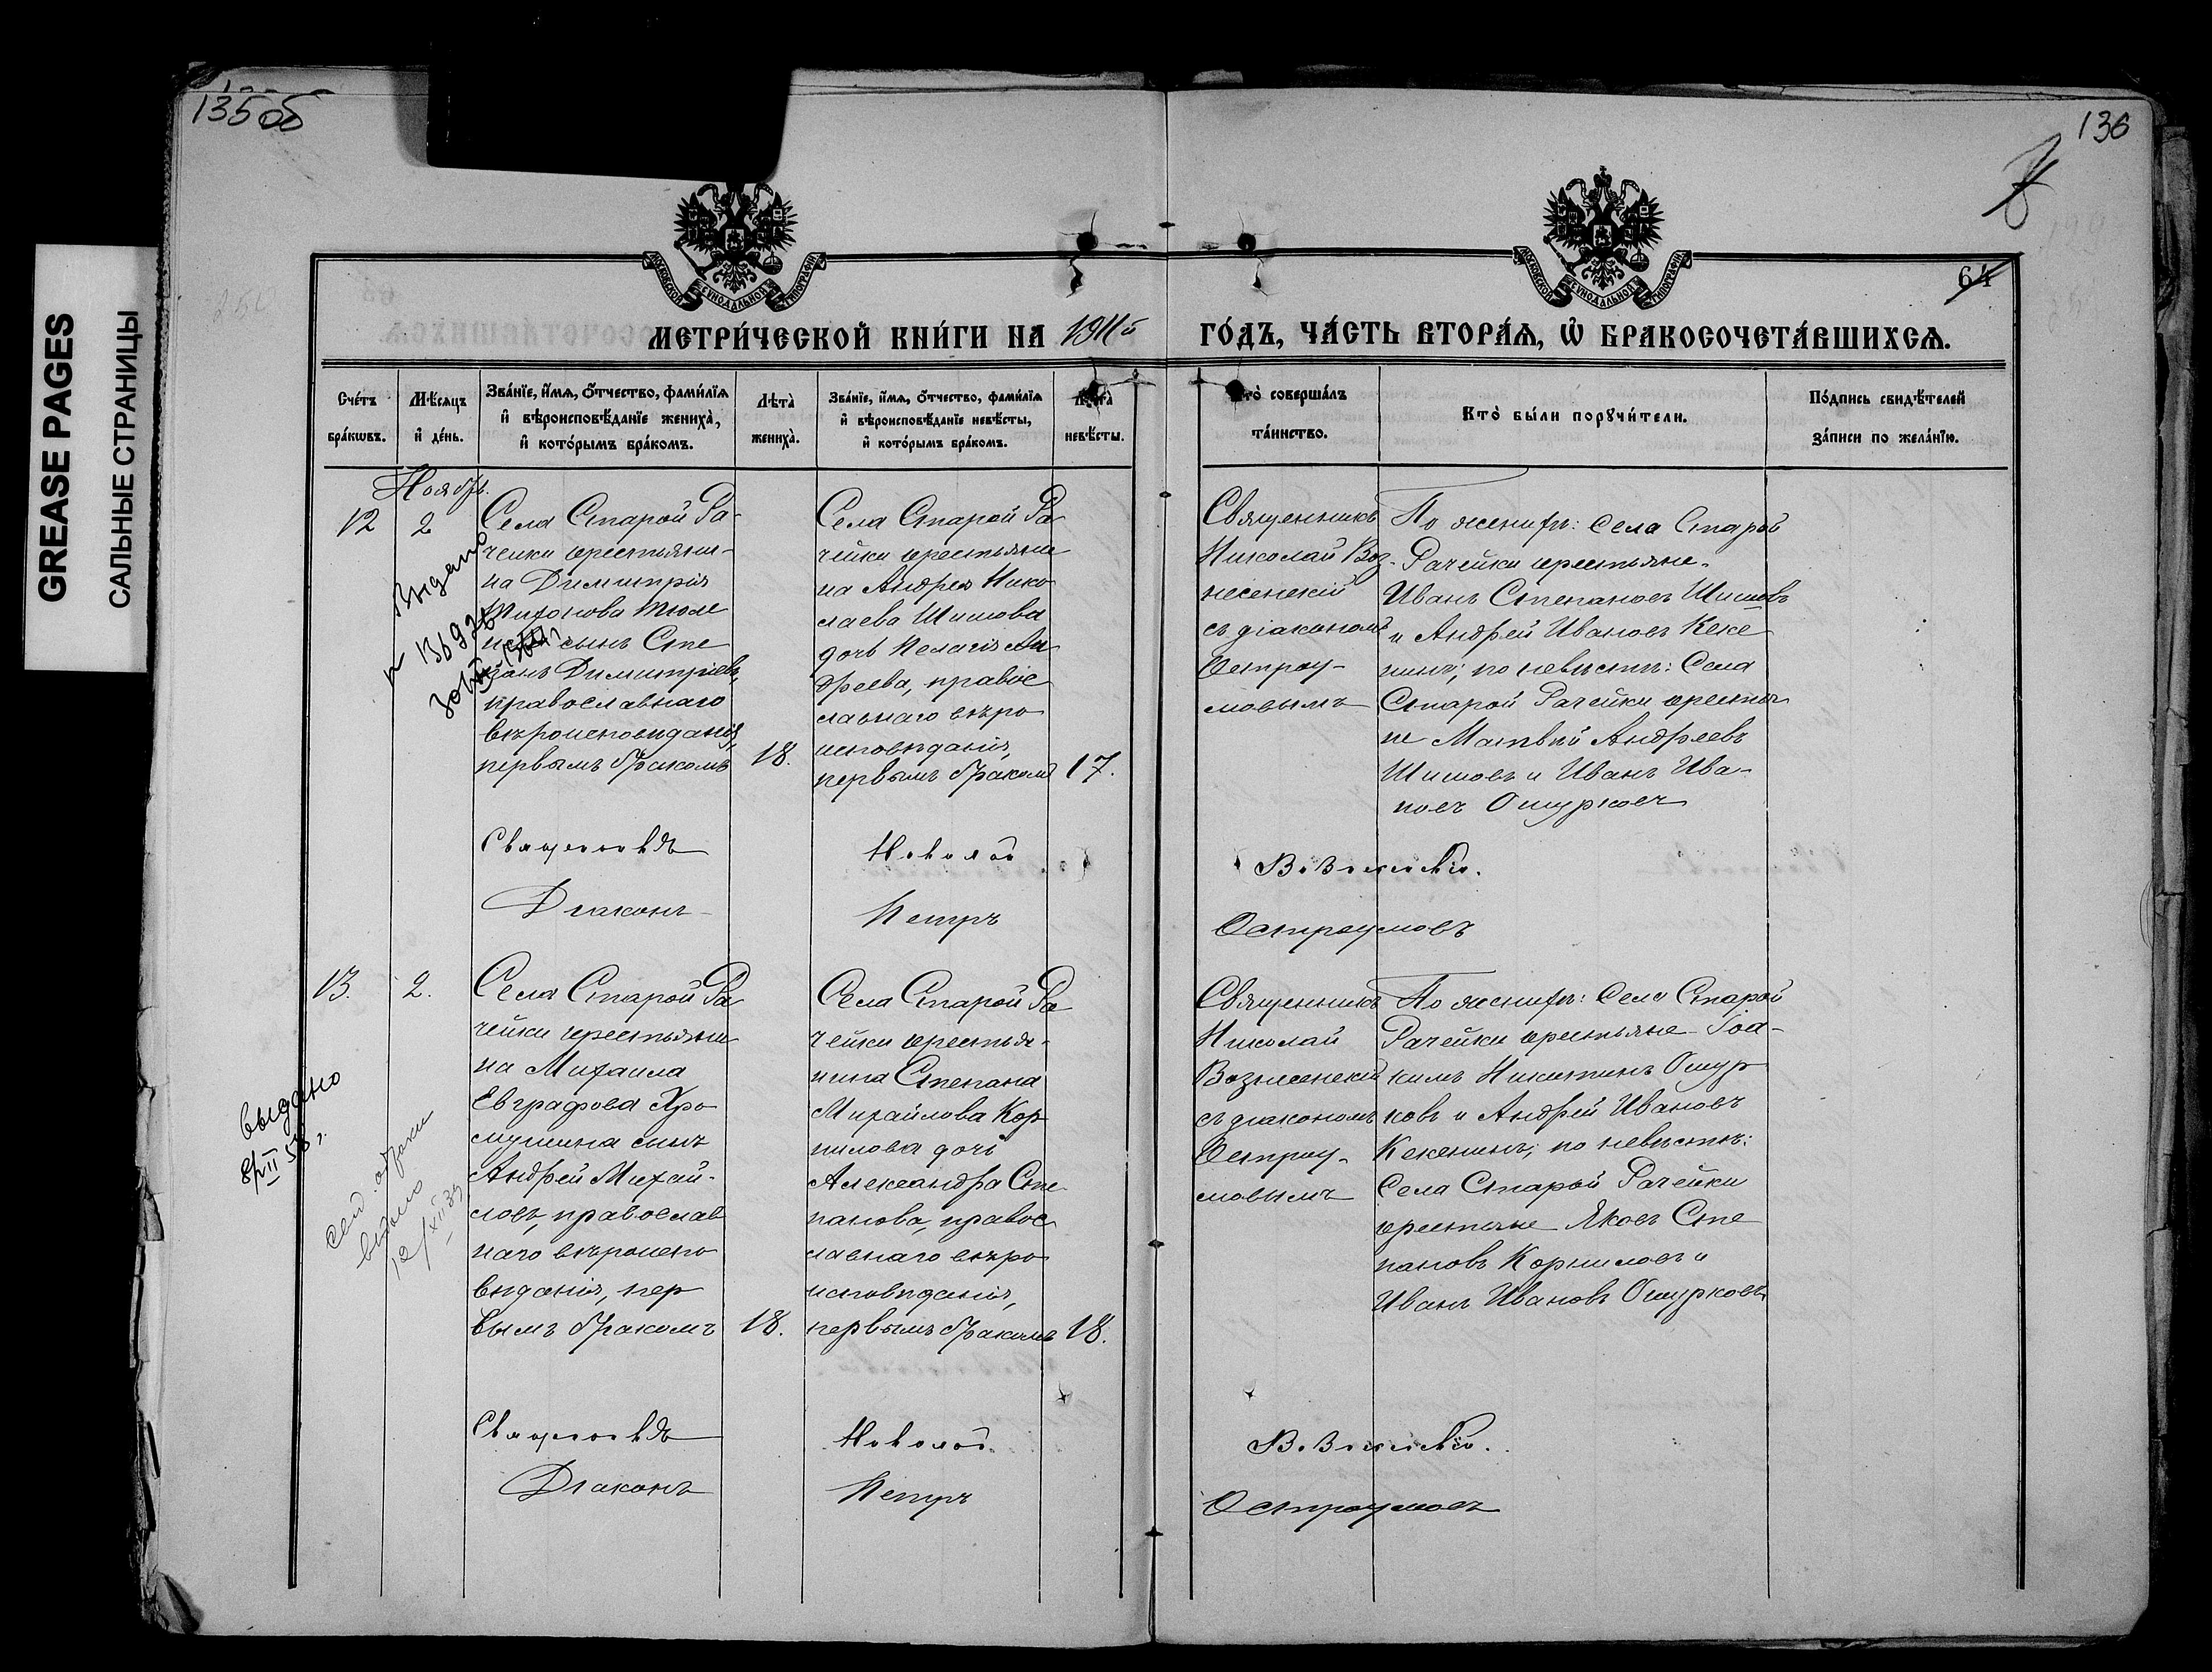 135об
136
GREASE PAGES
САЛЬНЫЕ СТРАНИЦЫ
МОСКОВСКОЙ СѴНОДАЛЬНОЙ ТИПОГРАФІИ
МОСКОВСКОЙ СѴНОДАЛЬНОЙ ТИПОГРАФІИ
64
МЕТРИ́ЧЕСКОЙ КНИ́ГИ НА 1911 ГО́ДЪ, ЧА́СТЬ ВТОРА́Ѧ, Ѡ҆ БРАКОСОЧЕТА́ВШИХСѦ.
Сче́тъ бра́кѡвъ.
Мѣ́сѧцъ и҆ де́нь.
Зва́нїе, и҆́мѧ, ѻ҆́тчество, фами́лїѧ
и҆ вѣроисповѣ́данїе жениха̀,
и҆ кото́рымъ бра́комъ.
Лѣта̀ жениха̀.
Зва́нїе, и҆́мѧ, ѻ҆́тчество, фами́лїѧ
и҆ вѣроисповѣ́данїе невѣ́сты,
и҆ кото́рымъ бра́комъ.
Лѣта̀ невѣ́сты.
Кто̀ соверша́лъ
та́инство.
Кто̀ бы́ли порꙋчи́тели.
По́дпись свидѣ́телей
за́писи по жела́нїю.
Ноябрь.
12
2
Выдано
Села Старой Ра-
чейки крестьяни-
на Димитрія
Тихонова Тюле
сынъ Сте
панъ Димитріевъ,
православнаго
вѣроисповѣданія,
первымъ бракомъ
18.
Села Старой Ра
чейки крестьяни
на Андрея Нико
лаева Шишова
дочь Пелагія Ан
дреева, правос
лавнаго вѣро
исповѣданія,
первымъ бракомъ
17.
Священникъ
Николай Воз-
несенскій
съ діакономъ
Остроу-
мовымъ
По женихѣ: села Старой
Рачейки крестьяне
Иванъ Степановъ Шишовъ
и Андрей Ивановъ Кеке
нинъ; по невѣстѣ: Села
Старой Рачейки крестья
не Матвѣй Андреевъ
Шишовъ и Иванъ Ива-
новъ Ошурковъ
Священникъ Николай Вознесенскій.
Діаконъ Петръ Остроумовъ
13.
2.
выдано
8/II 53 г.
выдано
12/XII 39
Села Старой Ра
чейки крестьяни
на Михаила
Евграфова Хро
мушина сынъ
Андрей Михай-
ловъ, православ
наго вѣроиспо
вѣданія, пер
вымъ бракомъ
18.
Села Старой Ра
чейки крестья-
нина Степана
Михайлова Кор
нилова дочь
Александра Сте
панова, правос
лавнаго вѣро
исповѣданія,
первымъ бракомъ
18.
Священникъ
Николай
Вознесенскій
съ діакономъ
Остроу-
мовымъ
По женихѣ: Села Старой
Рачейки крестьяне Іоа-
кимъ Никитинъ Ошур
ковъ и Андрей Ивановъ
Кекенинъ; по невѣстѣ:
Села Старой Рачейки
крестьяне Яковъ Сте
пановъ Корниловъ и
Иванъ Ивановъ Ошурковъ
Священникъ Николай Вознесенскій.
Діаконъ Петръ Остроумовъ